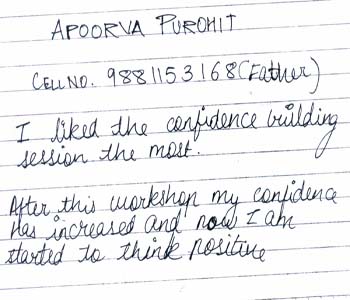 APOORVA PUROHIT
CELL NO. 9881153168 (Father)
I liked the confidence building
session the most.
After this workshop my confidence
has increased and now I am
started to think positive